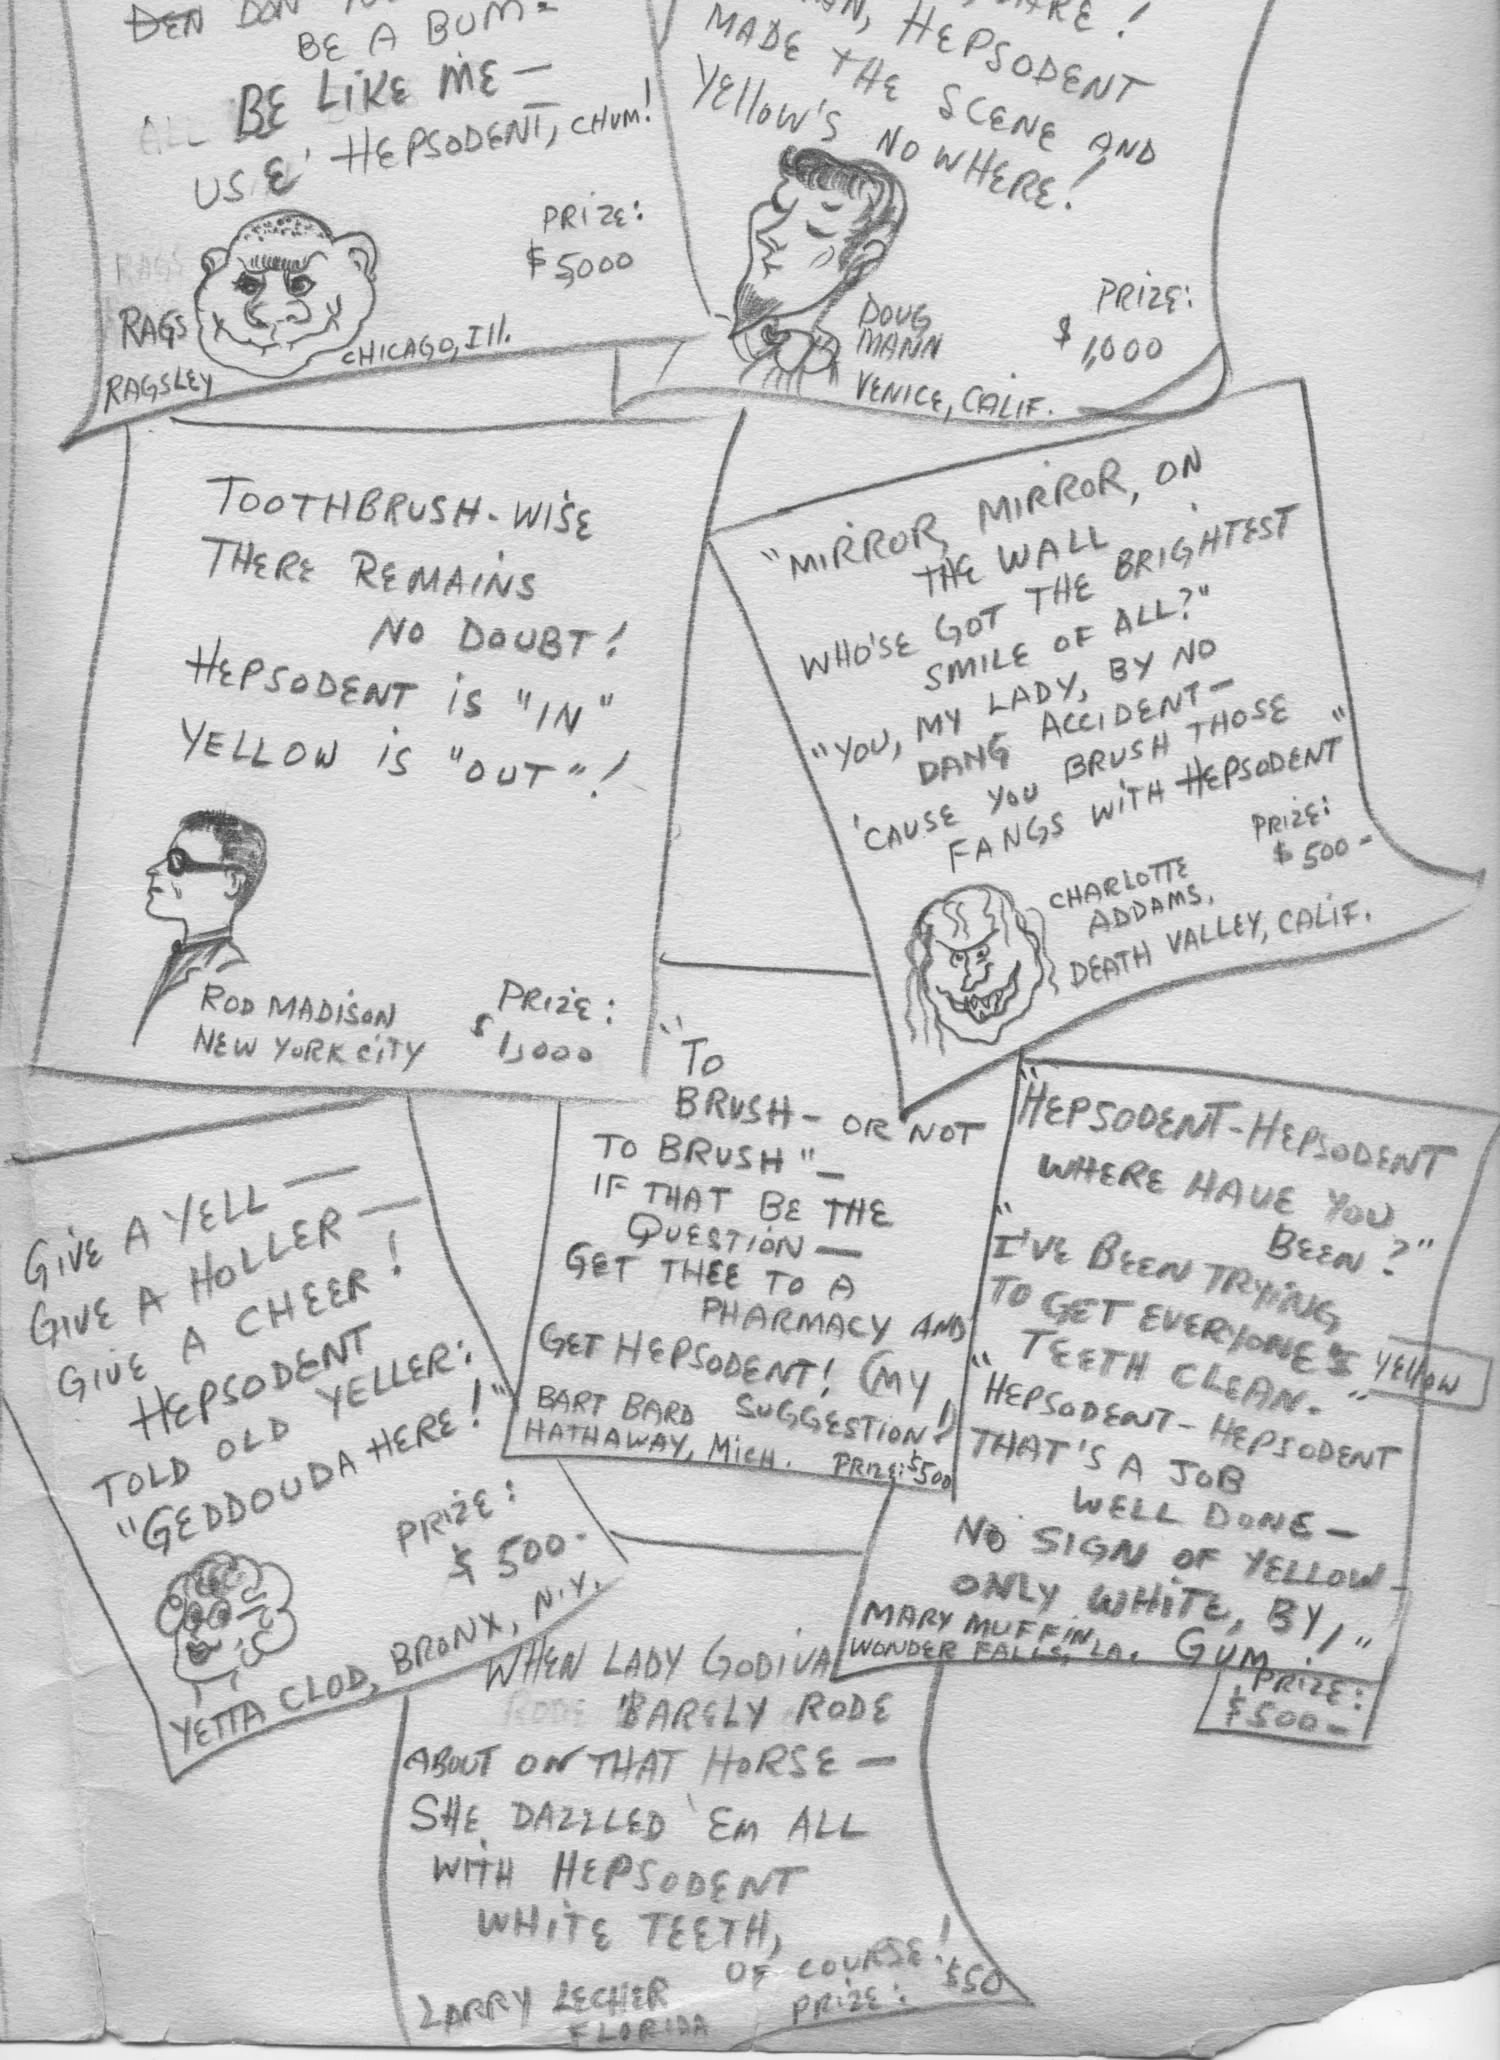 DEN DON'
BE A BUM-
BE LIKE ME—
ALL
USE HEPSODENT, CHUM!
PRIZE:
$5,000
RAGS
RAGS
RAGSLEY
CHICAGO, Ill.
HEPSODENT
MADE THE SCENE AND
Yellow's NOWHERE!
PRIZE:
$1,000
DOUG
MANN
VENICE, CALIF.
TOOTHBRUSH-WISE
THERE REMAINS
NO DOUBT!
HEPSODENT is "IN"
YELLOW is "OUT"!
ROD MADISON
NEW YORK CITY
PRIZE:
$1,000
"MIRROR, MIRROR, ON
THE WALL
WHO'SE GOT THE BRIGHTEST
SMILE OF ALL?"
"YOU, MY LADY, BY NO
DANG ACCIDENT—
'CAUSE YOU BRUSH THOSE
FANGS WITH HEPSODENT"
PRIZE:
$500-
CHARLOTTE
ADDAMS,
DEATH VALLEY, CALIF.
GIVE A YELL—
GIVE A HOLLER—
GIVE A CHEER!
HEPSODENT
TOLD OLD YELLER:
"GEDDOUDA HERE!"
PRIZE:
$500-
YETTA CLOD, BRONX, N.Y.
"TO
BRUSH— OR NOT
TO BRUSH"—
IF THAT BE THE
QUESTION—
GET THEE TO A
PHARMACY AND
GET HEPSODENT! (MY
SUGGESTION!)
BART BARD
HATHAWAY, MICH.
PRIZE: $500
"HEPSODENT-HEPSODENT
WHERE HAVE YOU
BEEN?"
"I'VE BEEN TRYING
TO GET EVERYONE'S
YEllOW
TEETH CLEAN."
"HEPSODENT-HEPSODENT
THAT'S A JOB
WELL DONE—
NO SIGN OF YELLOW-
ONLY WHITE, BY,"
GUM!
MARY MUFFIN,
WONDER FALLS, LA.
PRIZE:
$500-
WHEN LADY GODIVA
RODE BARELY RODE
ABOUT ON THAT HORSE—
SHE DAZZLED 'EM ALL
WITH HEPSODENT
WHITE TEETH,
OF COURSE!
LARRY LECHER
FLORIDA
PRIZE: $50